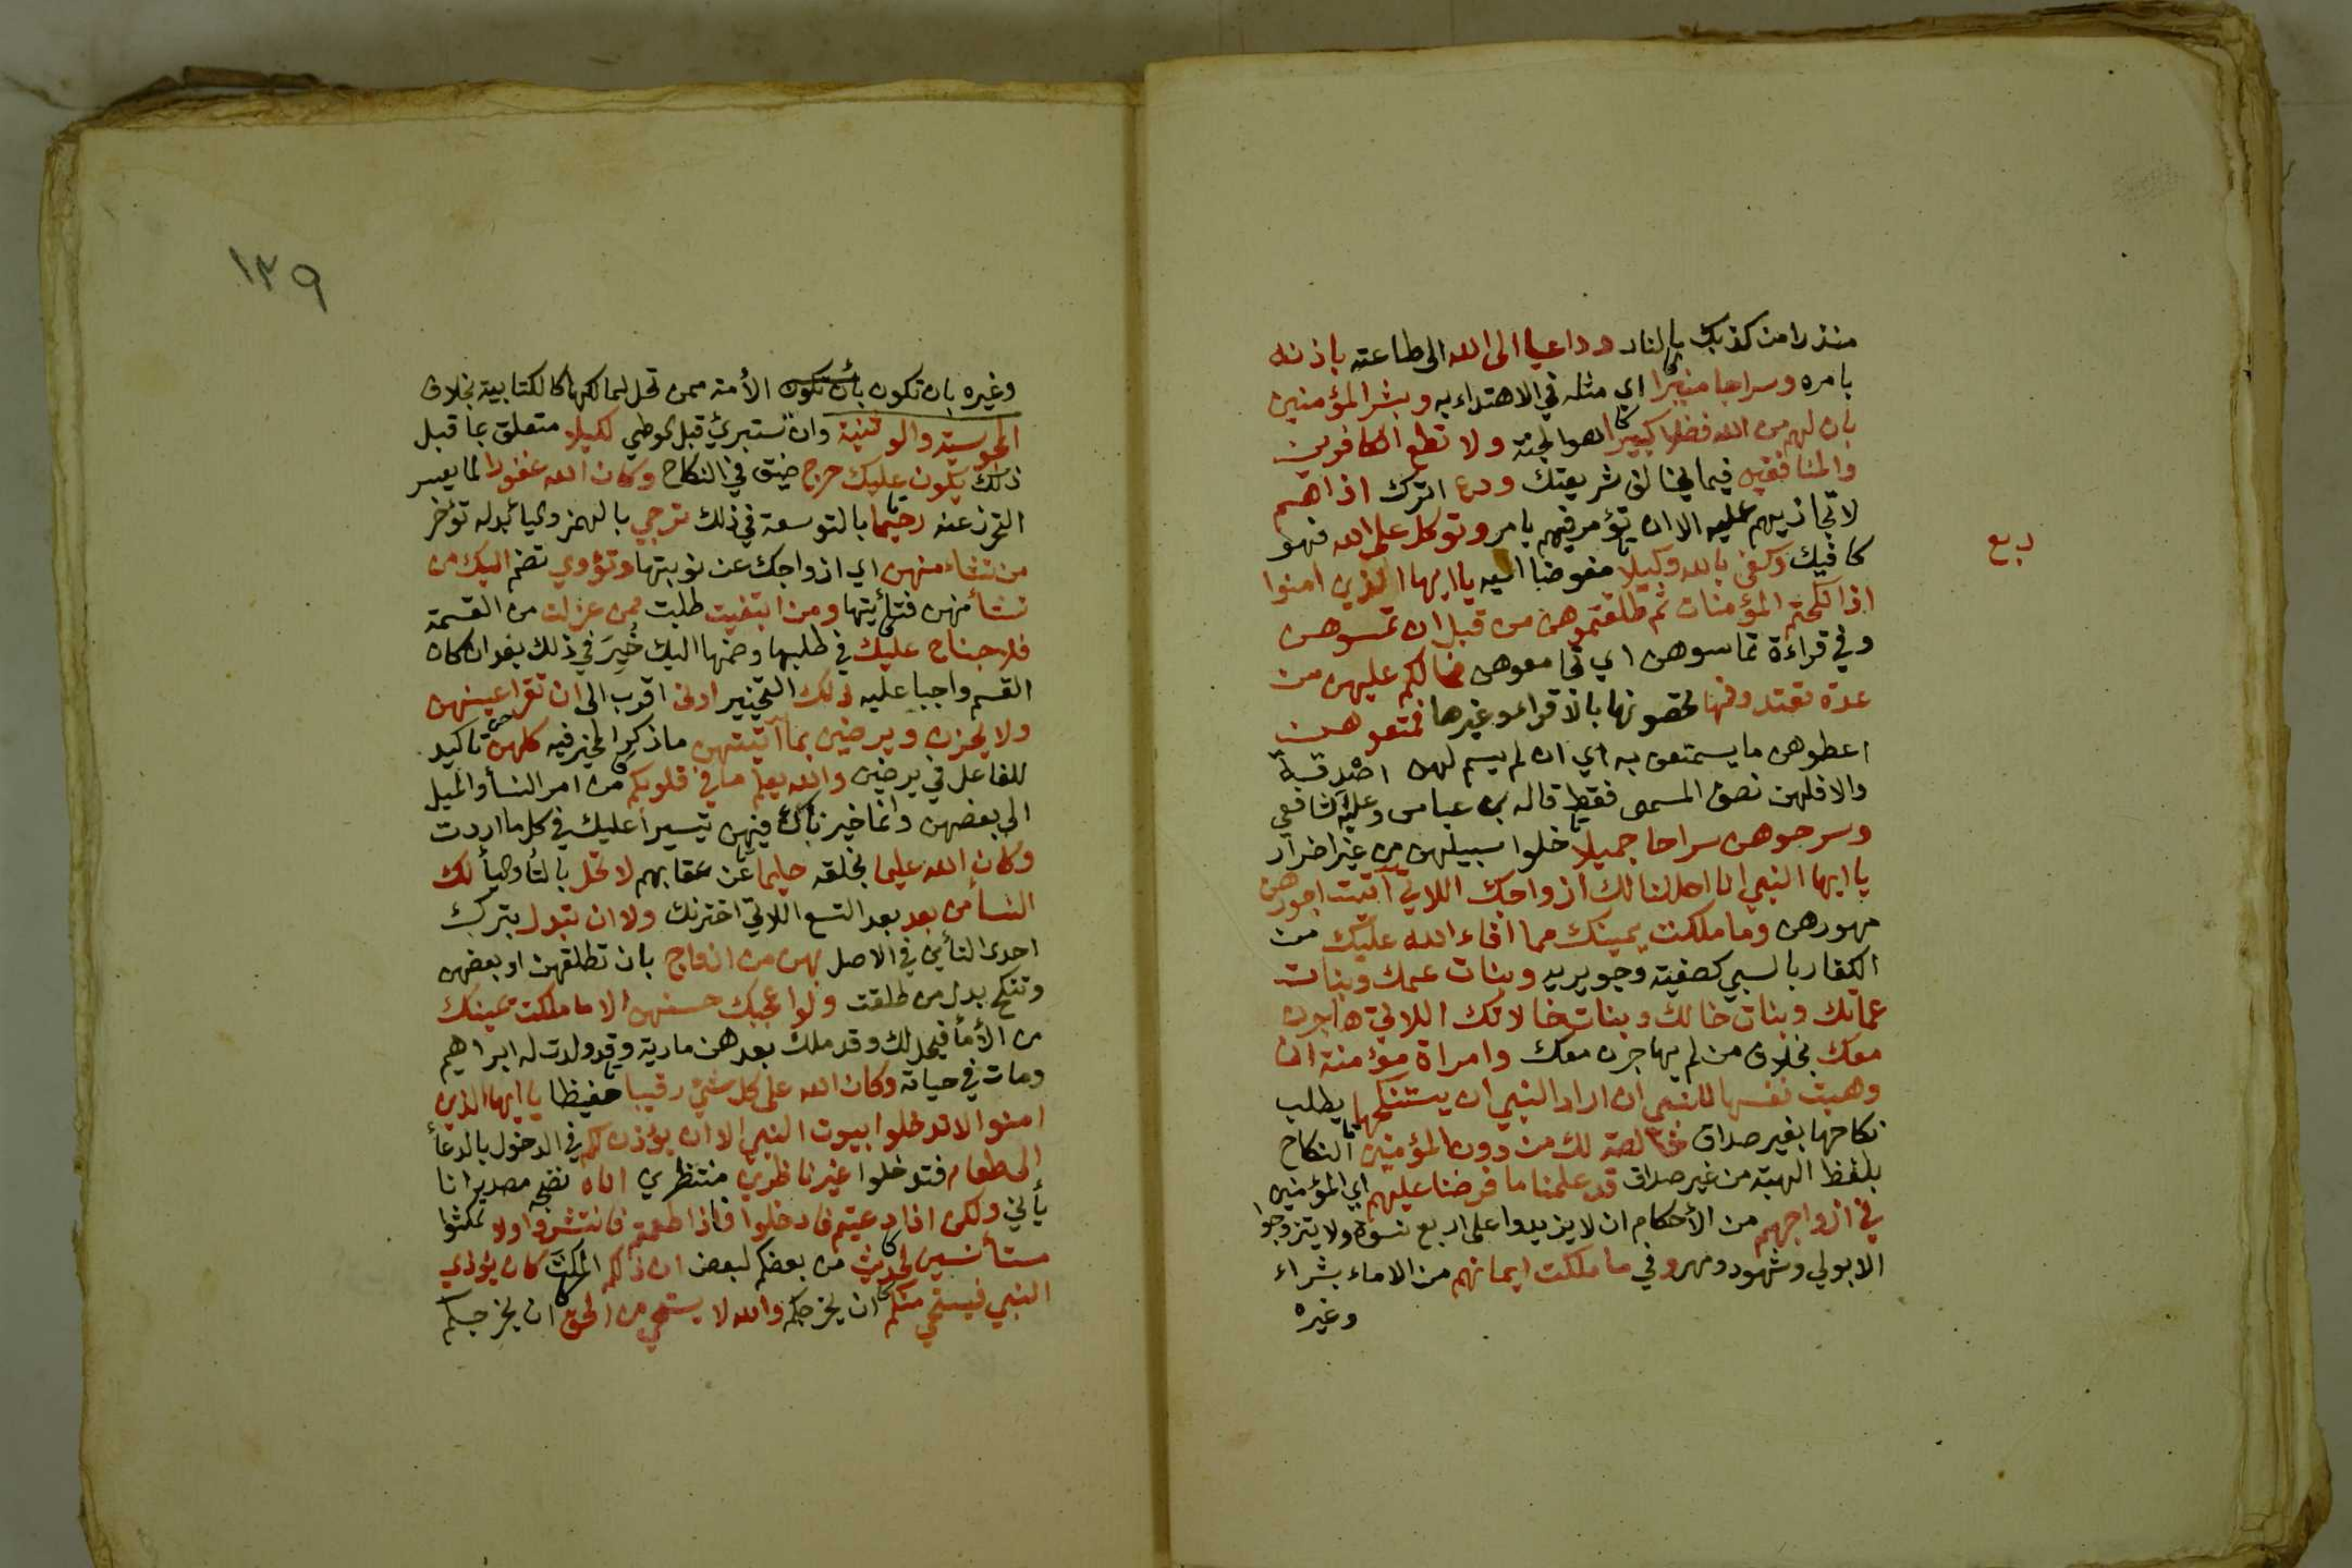 منذرا من كذبك بالنار وداعيا الى الله الى طاعته باذنه
بامره وسراجا منيرا اي مثله في الاهتداء به وبشر المؤمنين
بان لهم من الله فضلا كبيرا هو الجنة ولا تطع الكافرين
والمنافقين فيما يخالف شريعتك ودع اترك اذاهم
لا تجازيهم عليه الا ان تؤمر فيهم بامر وتوكل على الله فهو
ربع
كافيك وكفى بالله وكيلا مفوضا اليه يا ايها الذين امنوا
اذا نكحتم المؤمنات ثم طلقتموهن من قبل ان تمسوهن
وفي قراءة تماسوهن اي تجامعوهن فما لكم عليهن من
عدة تعتدونها تحصونها بالاقراء وغيرها فمتعوهن
اعطوهن ما يستمتعن به اي ان لم يسم لهن اصدقة
والا فلهن نصف المسمى فقط قاله بن عباس وعليه الشافعي
وسرحوهن سراحا جميلا خلوا سبيلهن من غير اضرار
يا ايها النبي انا احللنا لك ازواجك اللاتي اتيت اجورهن
مهورهن وما ملكت يمينك مما افاء الله عليك من
الكفار بالسبي كصفية وجويريه وبنات عمك وبنات
عماتك وبنات خالك وبنات خالاتك اللاتي هاجرن
معك بخلاف من لم يهاجرن معك وامراة مؤمنة ان
وهبت نفسها للنبي ان اراد النبي ان يستنكحها يطلب
نكاحها بغير صداق خالصة لك من دون المؤمنين النكاح
بلفظ الهبة من غير صداق قد علمنا ما فرضنا عليهم اي المؤمنين
في ازواجهم من الأحكام ان لا يزيدوا على اربع نسوة ولا يتزوجوا
الا بولي وشهود ومهر وفي ما ملكت ايمانهم من الاماء بشراء
وغيره
١٣٩
وغيره بان تكون بأن تكون الأمة ممن تحل لمالكها كالكتابية بخلاف
المجوسية والوثنية وان تستبرئ قبل الوطي لكيلا متعلق بما قبل
ذلك يكون عليك حرج ضيق في النكاح وكان الله غفورا لما يعسر
التحرز عنه رحيما بالتوسعة في ذلك ترجي بالهمز واليا بدله تؤخر
من تشاء منهن اي ازواجك عن نوبتها وتؤوي تضم اليك من
تشأ منهن فتأتيها ومن ابتغيت طلبت ممن عزلت من القسمة
فلا جناح عليك في طلبها وضمها اليك خُيِرَ في ذلك بعد ان كان
القسم واجبا عليه ذلك التخيير ادنى اقرب الى ان تقر اعينهن
ولا يحزن ويرضين بما آتيتهن ما ذكر المخير فيه كلهن تاكيد
للفاعل في يرضين والله يعلم ما في قلوبكم من امر النسأ والميل
الى بعضهن وانما خيرناك فيهن تيسيرا عليك في كل ما اردت
وكان الله عليما بخلقه حليما عن عقابهم لا تحل بالتأ واليأ لك
النسأ من بعد بعد التسع اللاتي اخترنك ولا ان تبدل بترك
احدى التأين في الاصل بهن من ازواج بان تطلقهن او بعضهن
وتنكح بدل من طلقت ولو اعجبك حسنهن الا ما ملكت يمينك
من الأمأ فيحل لك وقد ملك بعدهن مارية وقد ولدت له ابراهيم
ومات في حياته وكان الله على كل شيء رقيبا حفيظا يا ايها الذين
امنوا لا تدخلوا بيوت النبي الا ان يؤذن لكم في الدخول بالدعأ
الى طعام فتدخلوا غير ناظرين منتظري اناه نضجه مصدر انا
يأني ولكن اذا دعيتم فادخلوا فاذا طعمتم فانتشروا ولا تمكثوا
مستأنسين لحديث من بعضكم لبعض ان ذلكم المكث كان يؤذي
النبي فيستحي منكم ان يخرجكم والله لا يستحي من الحق ان يخرجكم